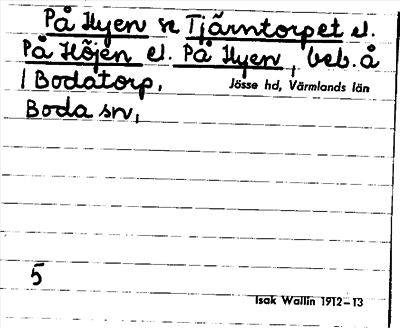 På Hyen se Tjärntorpet el.
På Höjen el. På Hyen, beb. å
1 Bodatorp,
Jösse hd, Värmlands län
Boda sn,
5
Isak Wallin 1912–13